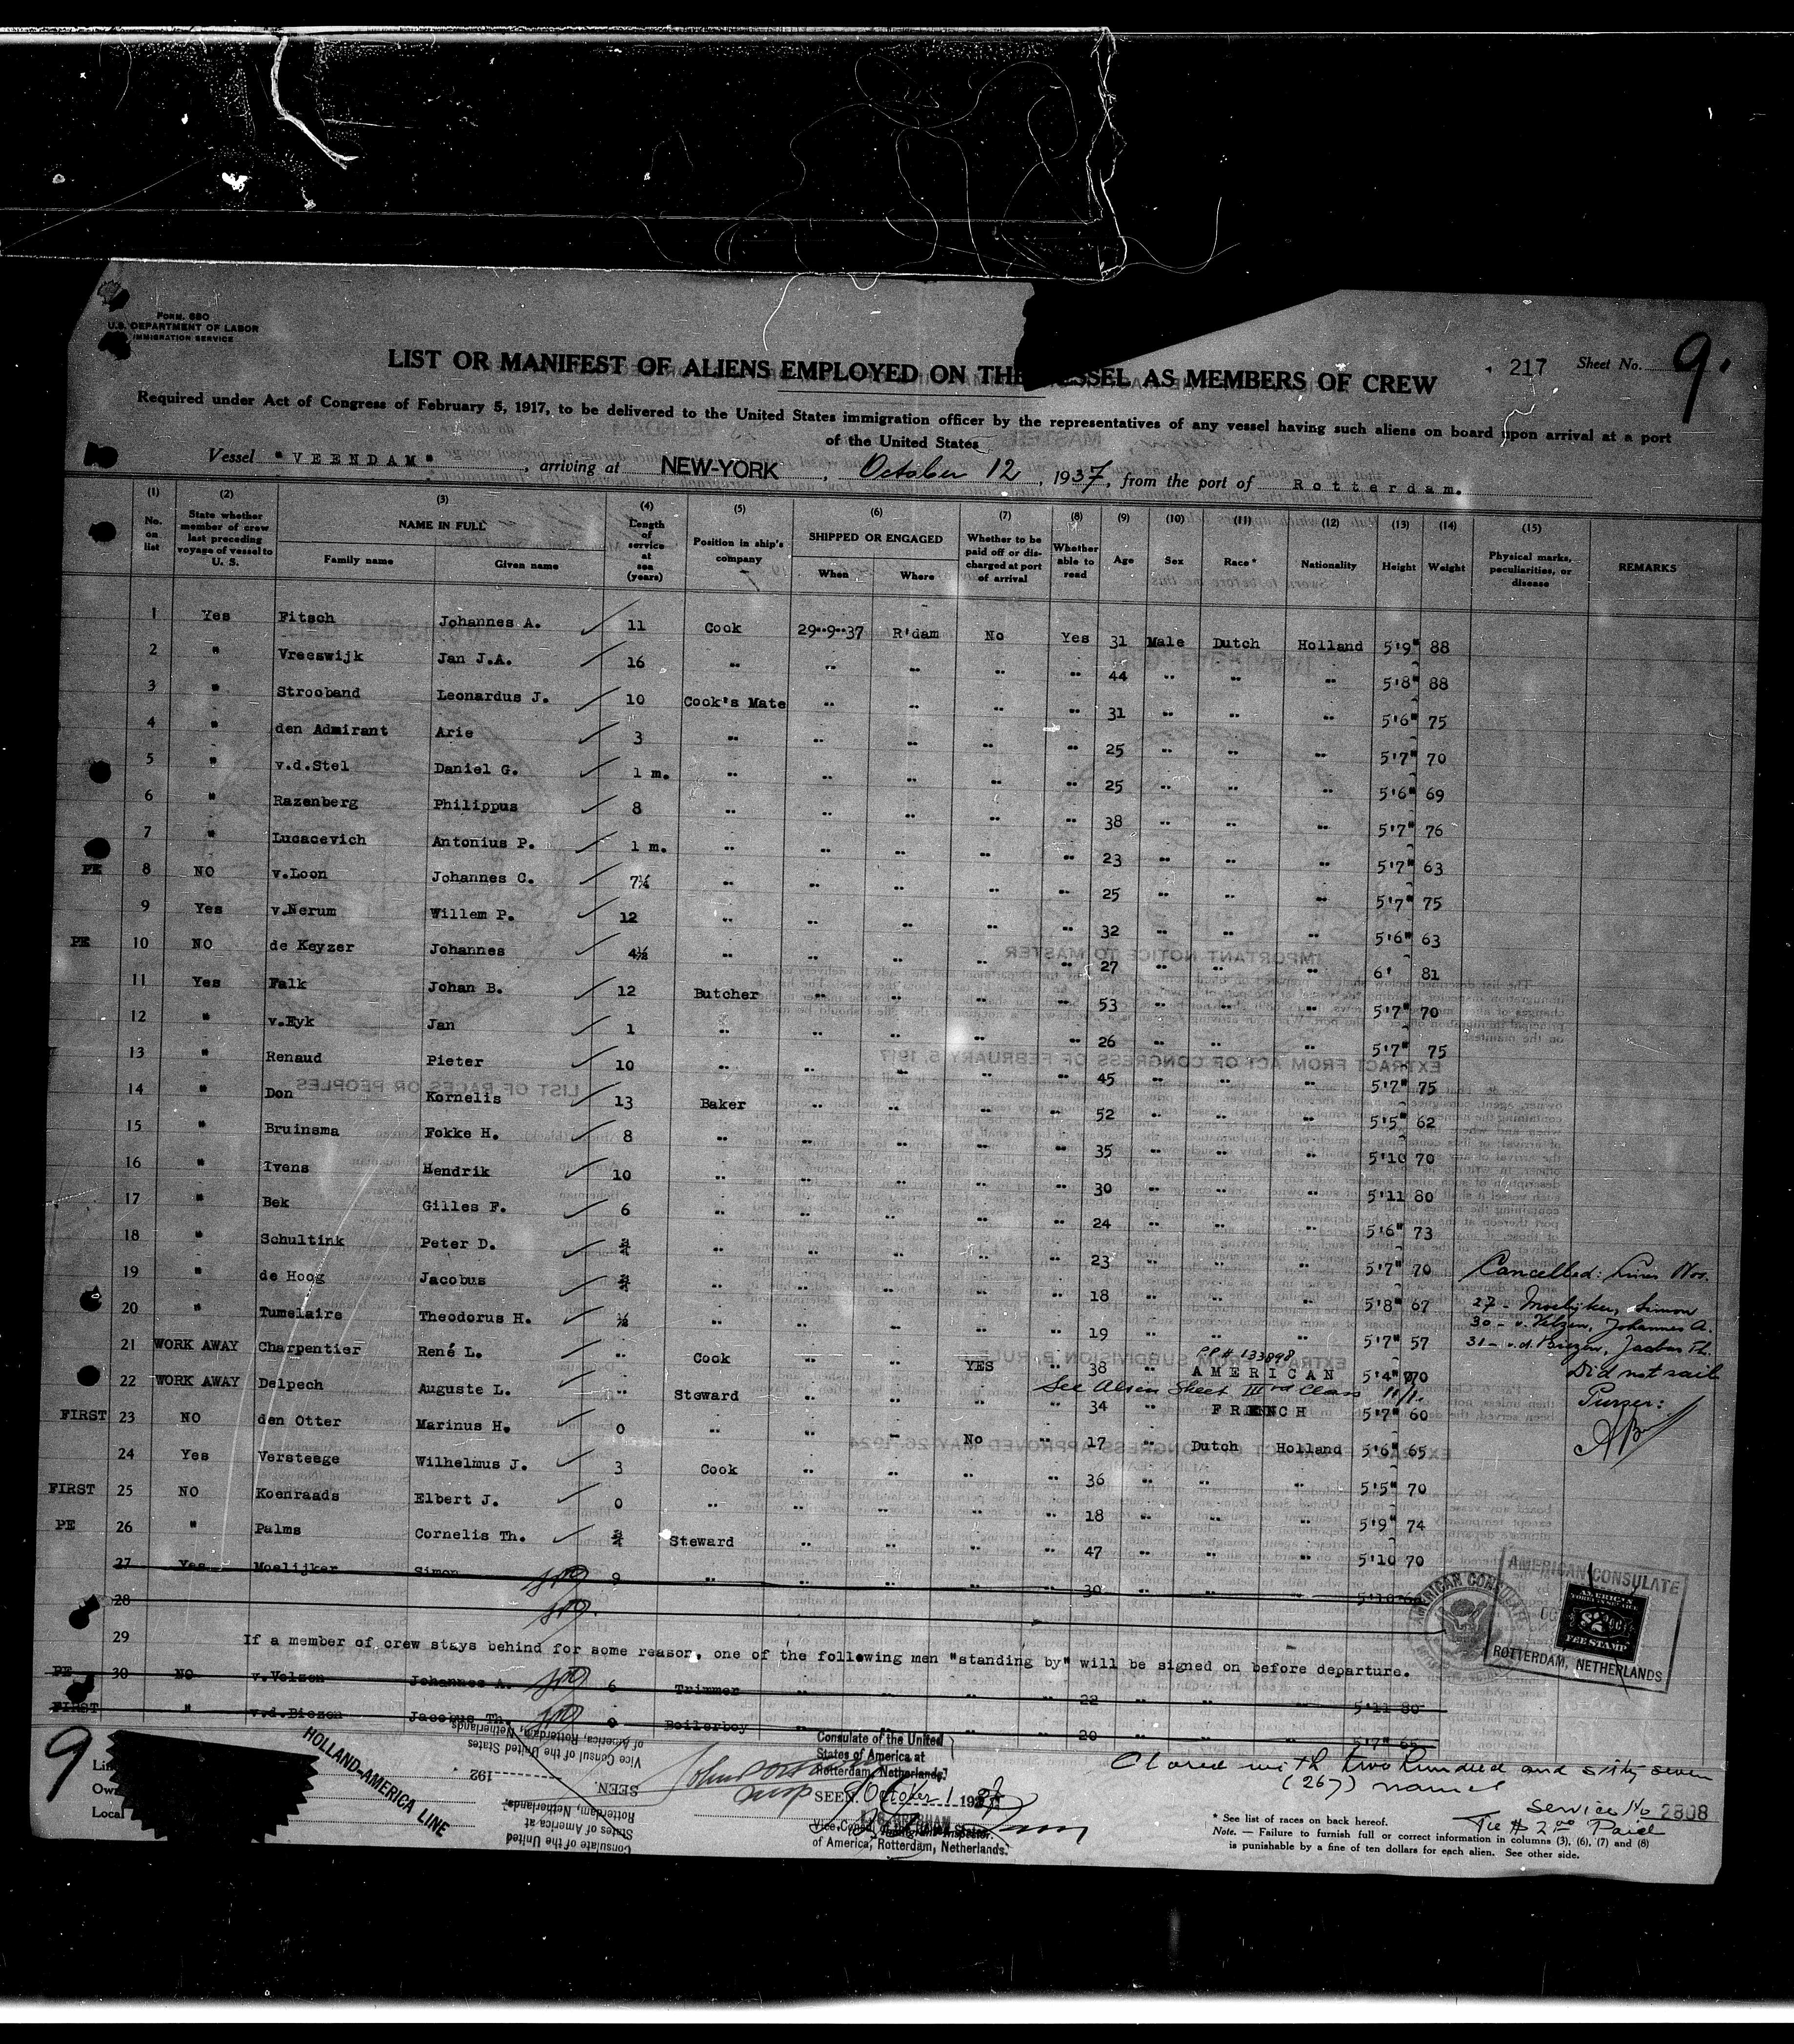 FORM. 680
U.S. DEPARTMENT OF LABOR
IMMIGRATION SERVICE
LIST OR MANIFEST OF ALIENS EMPLOYED ON THE VESSEL AS MEMBERS OF CREW
217 Sheet No. 9.
Required under Act of Congress of February 5, 1917, to be delivered to the United States immigration officer by the representatives of any vessel having such aliens on board upon arrival at a port
of the United States
Vessel "VEENDAM", arriving at NEW-YORK, October 12, 1937, from the port of Rotterdam.
(1) No. on list (2) State whether member of crew last preceding voyage of vessel to U. S. (3) NAME IN FULL Family name Given name (4) Length of service at sea (years) (5) Position in ship's company (6) SHIPPED OR ENGAGED When Where (7) Whether to be paid off or discharged at port of arrival (8) Whether able to read (9) Age (10) Sex (11) Race* (12) Nationality (13) Height (14) Weight (15) Physical marks, peculiarities, or disease REMARKS
1 Yes Fitsch Johannes A. 11 Cook 29"9"37 R'dam No Yes 31 Male Dutch Holland 5'9" 88
2 " Vreeswijk Jan J.A. 16 " " " " " 44 " " " 5'8" 88
3 " Strooband Leonardus J. 10 Cook's Mate " " " " 31 " " " 5'6" 75
4 " den Admirant Arie 3 " " " " " 25 " " " 5'7" 70
5 " v.d.Stel Daniel G. 1 m. " " " " " 25 " " " 5'6" 69
6 " Razenberg Philippus 8 " " " " " 38 " " " 5'7" 76
7 " Lucacevich Antonius P. 1 m. " " " " " 23 " " " 5'7" 63
PE 8 NO v.Loon Johannes C. 7¼ " " " " " 25 " " " 5'7" 75
9 Yes v.Nerum Willem P. 12 " " " " " 32 " " " 5'6" 63
PE 10 NO de Keyzer Johannes 4½ " " " " " 27 " " " 6' 81
11 Yes Falk Johan B. 12 Butcher " " " " 53 " " " 5'7" 70
12 " v.Eyk Jan 1 " " " " " 26 " " " 5'7" 75
13 " Renaud Pieter 10 " " " " " 45 " " " 5'7" 75
14 " Don Kornelis 13 Baker " " " " 52 " " " 5'5" 62
15 " Bruinsma Fokke H. 8 " " " " " 35 " " " 5'10 70
16 " Ivens Hendrik 10 " " " " " 30 " " " 5'11 80
17 " Bek Gilles F. 6 " " " " " 24 " " " 5'6" 73
18 " Schultink Peter D. ¾ " " " " " 23 " " " 5'7" 70 Cancelled: Lines Nos.
19 " de Hoog Jacobus ¾ " " " " " 18 " " " 5'8" 67 27 - Moelijker, Simon
20 " Tumelaire Theodorus H. ½ " " " " " 19 " " " 5'7" 57 30 - v. Velzen, Johannes A.
31 - v.d. Biezen, Jacobus Th.
PP# 133898
21 WORK AWAY Charpentier René L. " Cook " " YES " 38 " AMERICAN 5'4" 70 Did not sail
See Alien Sheet IIIrd Class
22 WORK AWAY Delpech Auguste L. " Steward " " " " 34 " FRENCH 5'7" 60 Purser:
FIRST 23 NO den Otter Marinus H. 0 " " " No " 17 " Dutch Holland 5'6" 65
24 Yes Versteege Wilhelmus J. 3 Cook " " " " 36 " " " 5'5" 70
FIRST 25 NO Koenraads Elbert J. 0 " " " " " 18 " " " 5'9" 74
PE 26 " Palms Cornelis Th. ¾ Steward " " " " 47 " " " 5'10 70
27 Yes Moelijker Simon 9 " " " " " 30 " " " 5'10
28
29 If a member of crew stays behind for some reason, one of the following men "standing by" will be signed on before departure.
PE 30 NO v.Velzen Johannes A. 6 Trimmer " " " " 22 " " " 5'11 80
FIRST " v.d.Biezen Jacobus Th. 0 Boilerboy " " " " 20 " " " 5'7" 65
AMERICAN CONSULATE
ROTTERDAM, NETHERLANDS
AMERICAN CONSULATE
AMERICAN
FOREIGN SERVICE
$2
FEE STAMP
9
Lin
Own
Local
HOLLAND-AMERICA LINE
Consulate of the United
States of America at
Rotterdam, Netherlands
SEEN
192
Vice Consul of the United States
of America, Rotterdam, Netherlands
Consulate of the United
States of America at
Rotterdam, Netherlands.
SEEN October 1 1937
Vice Consul of the United States
of America, Rotterdam, Netherlands.
Immigrant Inspector.
Closed with two hundred and sixty seven
(267) names
Service No 2808
Fee $ 2.00 Paid
* See list of races on back hereof.
Note. — Failure to furnish full or correct information in columns (3), (6), (7) and (8)
is punishable by a fine of ten dollars for each alien. See other side.